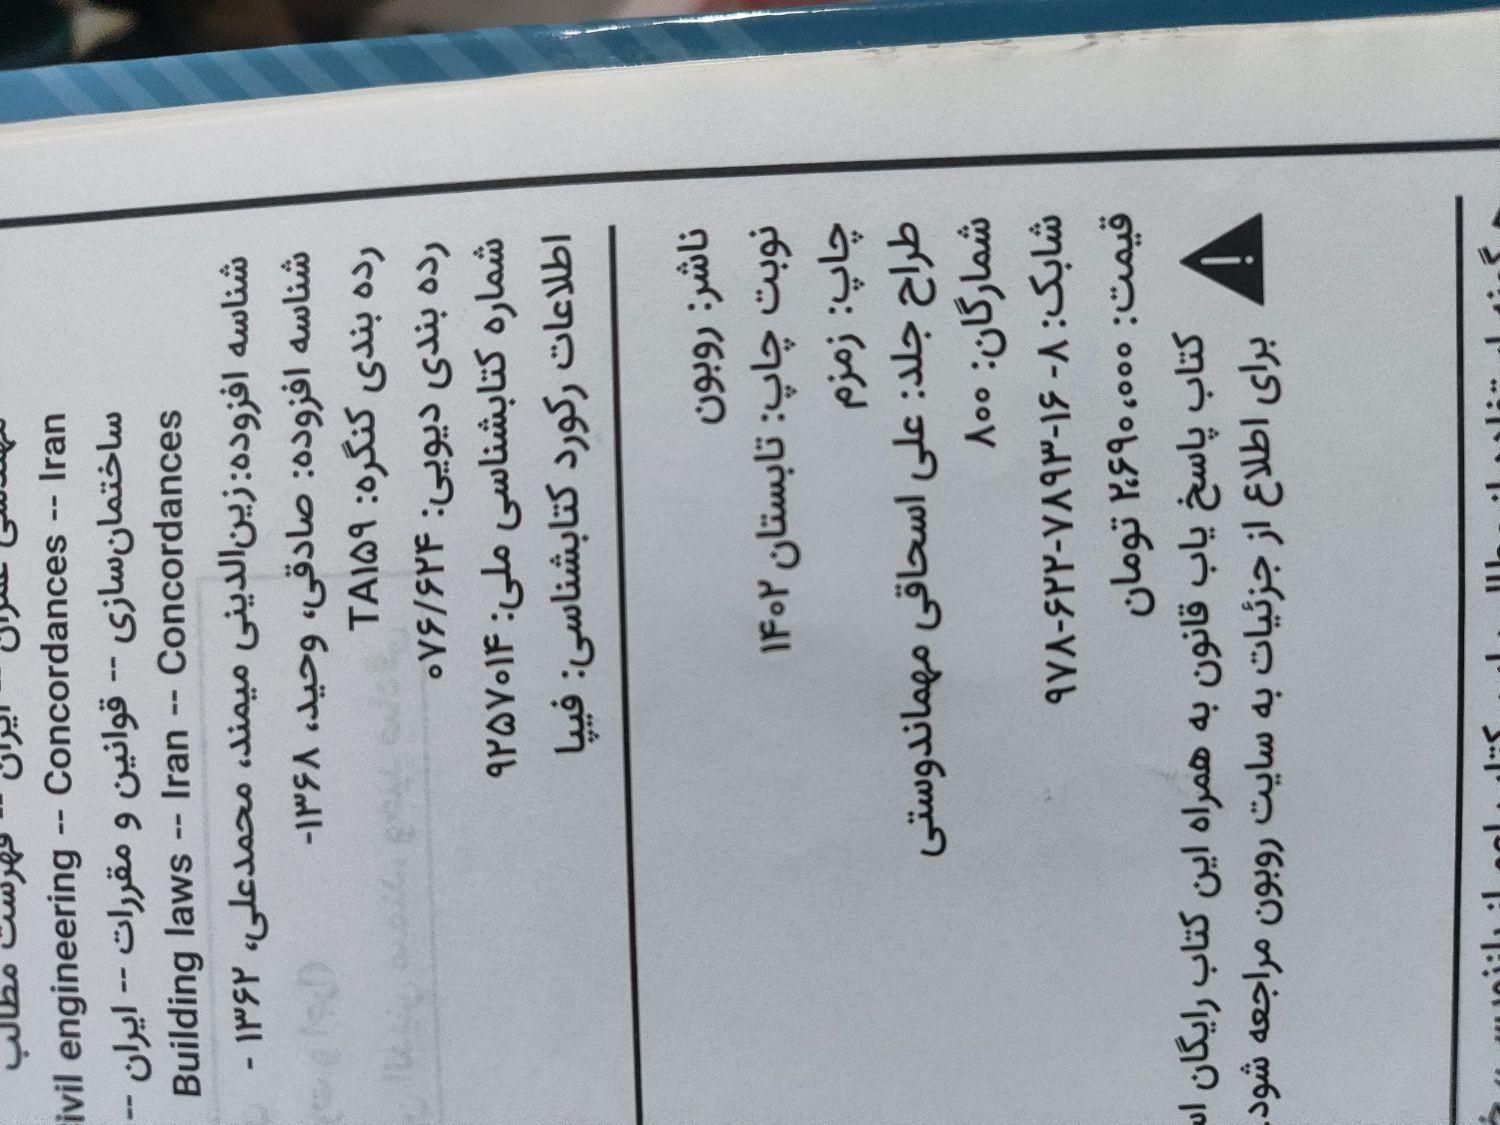 مهندسی عمران -- ایران -- فهرست مطالب
ivil engineering -- Concordances -- Iran
ساختمان‌سازی -- قوانین و مقررات -- ایران --
Building laws -- Iran -- Concordances
شناسه افزوده: زین‌الدینی میمند، محمدعلی، ۱۳۶۲ -
شناسه افزوده: صادقی، وحید، ۱۳۶۸-
رده بندی کنگره: TA۱۵۹
رده بندی دیویی: ۰۷۶/۶۲۴
شماره کتابشناسی ملی: ۹۲۵۷۰۱۴
اطلاعات رکورد کتابشناسی: فیپا
ناشر: روبون
نوبت چاپ: تابستان ۱۴۰۲
چاپ: زمزم
طراح جلد: علی اسحاقی مهماندوستی
شمارگان: ۸۰۰
شابک: ۸-۱۶-۷۸۹۳-۶۲۲-۹۷۸
قیمت: ۲،۶۹۰،۰۰۰ تومان
کتاب پاسخ یاب قانون به همراه این کتاب رایگان
برای اطلاع از جزئیات به سایت روبون مراجعه شود.